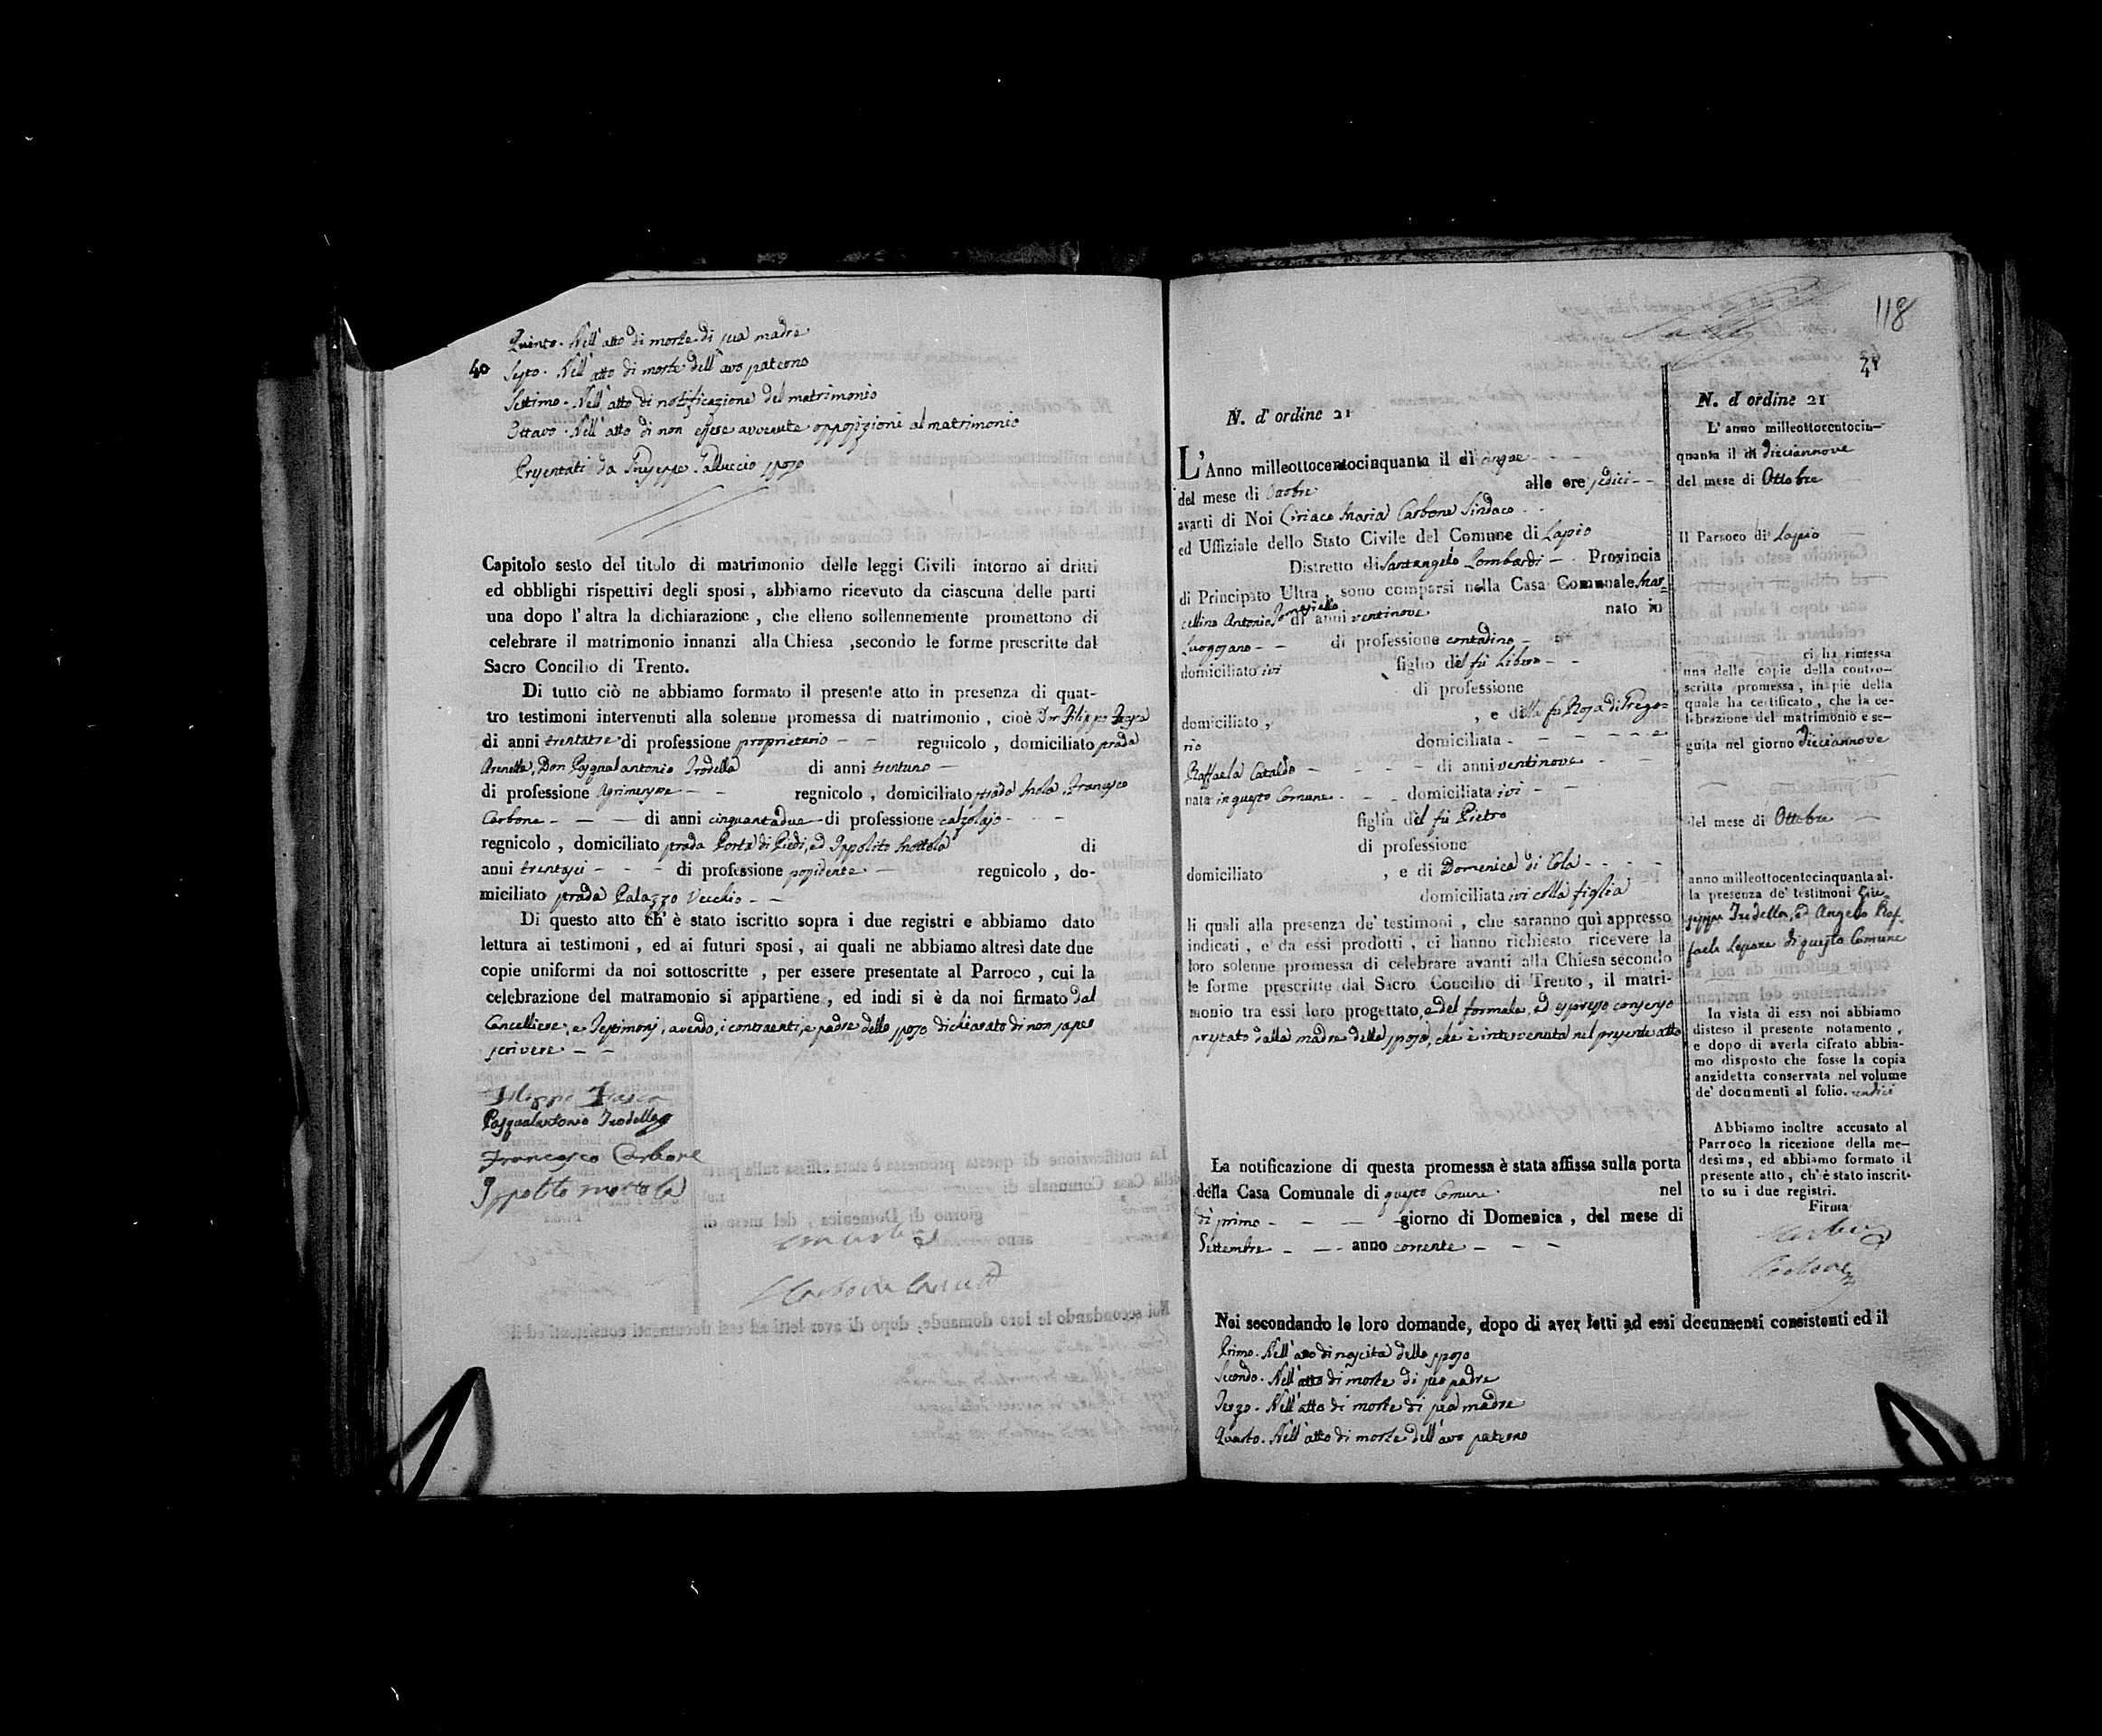 40
Quinto. Nell'atto di morte di sua madre
Sesto. Nell'atto di morte dell'avo paterno
Settimo. Nell'atto di notificazione del matrimonio
Ottavo. Nell'atto di non essere avvenute opposizioni al matrimonio
Presentati da Giuseppe Palluccio sposo
Capitolo sesto del titolo di matrimonio delle leggi Civili intorno ai dritti
ed obblighi rispettivi degli sposi, abbiamo ricevuto da ciascuna delle parti
una dopo l'altra la dichiarazione, che elleno sollennemente promettono di
celebrare il matrimonio innanzi alla Chiesa, secondo le forme prescritte dal
Sacro Concilio di Trento.
Di tutto ciò ne abbiamo formato il presente atto in presenza di quat-
tro testimoni intervenuti alla solenne promessa di matrimonio, cioè Don Filippo
di anni trentatre di professione proprietario - - regnicolo, domiciliato strada
Arenella, Don Pasqualantonio Trodella di anni trentuno -
di professione Agrimensore - - regnicolo, domiciliato strada Mola, Francesco
Carbone - - - di anni cinquantadue - di professione calzolajo - - -
regnicolo, domiciliato strada Porta di Piedi, ed Ippolito Mottola di
anni trentasei - - - di professione possidente - regnicolo, do-
miciliato strada Palazzo Vecchio - -
Di questo atto ch'è stato iscritto sopra i due registri e abbiamo dato
lettura ai testimoni, ed ai futuri sposi, ai quali ne abbiamo altresì date due
copie uniformi da noi sottoscritte, per essere presentate al Parroco, cui la
celebrazione del matramonio si appartiene, ed indi si è da noi firmato dal
Cancelliere, e Testimonj, avendo, i contraenti, e padre dello sposo dichiarato di non saper
scrivere - -
Pasqualantonio Trodella
Francesco Carbone
Ippolito Mottola
118
41
N. d'ordine 21
L'Anno milleottocentocinquanta il dì cinque - - -
del mese di Ottobre alle ore sedici - -
avanti di Noi Ciriaco Maria Carbone Sindaco - -
ed Uffiziale dello Stato Civile del Comune di Lapio
Distretto di Santangelo Lombardi - . Provincia
di Principato Ultra, sono comparsi nella Casa Comunale Mar-
cellino Antonio di anni ventinove nato in
Luogosano - - di professione contadino -
domiciliato ivi figlio del fù Libero - -
di professione
domiciliato, , e della fù Rosa di Prego-
rio domiciliata - - - - - -
Raffaela Cataldo - - - - di anni ventinove - -
nata in questo Comune - - - domiciliata ivi - - -
figlia del fù Pietro
di professione
domiciliato , e di Domenica di Cola - - - -
domiciliata ivi colla figlia
li quali alla presenza de' testimoni, che saranno quì appresso
indicati, e da essi prodotti, ci hanno richiesto ricevere la
loro solenne promessa di celebrare avanti alla Chiesa secondo
le forme prescritte dal Sacro Concilio di Trento, il matri-
monio tra essi loro progettato, e del formale, ed espresso consenso
prestato dalla madre della sposa, che è intervenuta nel presente atto
La notificazione di questa promessa è stata affissa sulla porta
della Casa Comunale di questo Comune nel
dì primo - - - giorno di Domenica, del mese di
Settembre - - - anno corrente - - -
Noi secondando le loro domande, dopo di aver letti ad essi documenti consistenti ed il
Primo. Nell'atto di nascita dello sposo
Secondo. Nell'atto di morte di suo padre
Terzo. Nell'atto di morte di sua madre
Quarto. Nell'atto di morte dell'avo paterno
N. d'ordine 21
L'anno milleottocentocin-
quanta il dì diciannove
del mese di Ottobre
Il Parroco di Lapio
ci ha rimessa
una delle copie della contro-
scritta promessa, in piè della
quale ha certificato, che la ce-
lebrazione del matrimonio e se-
guita nel giorno diciannove
del mese di Ottobre
anno milleottocentocinquanta al-
la presenza de' testimoni Giu-
seppe Trodella, ed Angelo Raf-
faele Lepore di questo Comune
In vista di essa noi abbiamo
disteso il presente notamento,
e dopo di averla cifrato abbia-
mo disposto che fosse la copia
anzidetta conservata nel volume
de' documenti al folio. undici
Abbiamo inoltre accusato al
Parroco la ricezione della me-
desima, ed abbiamo formato il
presente atto, ch'è stato inscrit-
to su i due registri.
Firma
Carbone